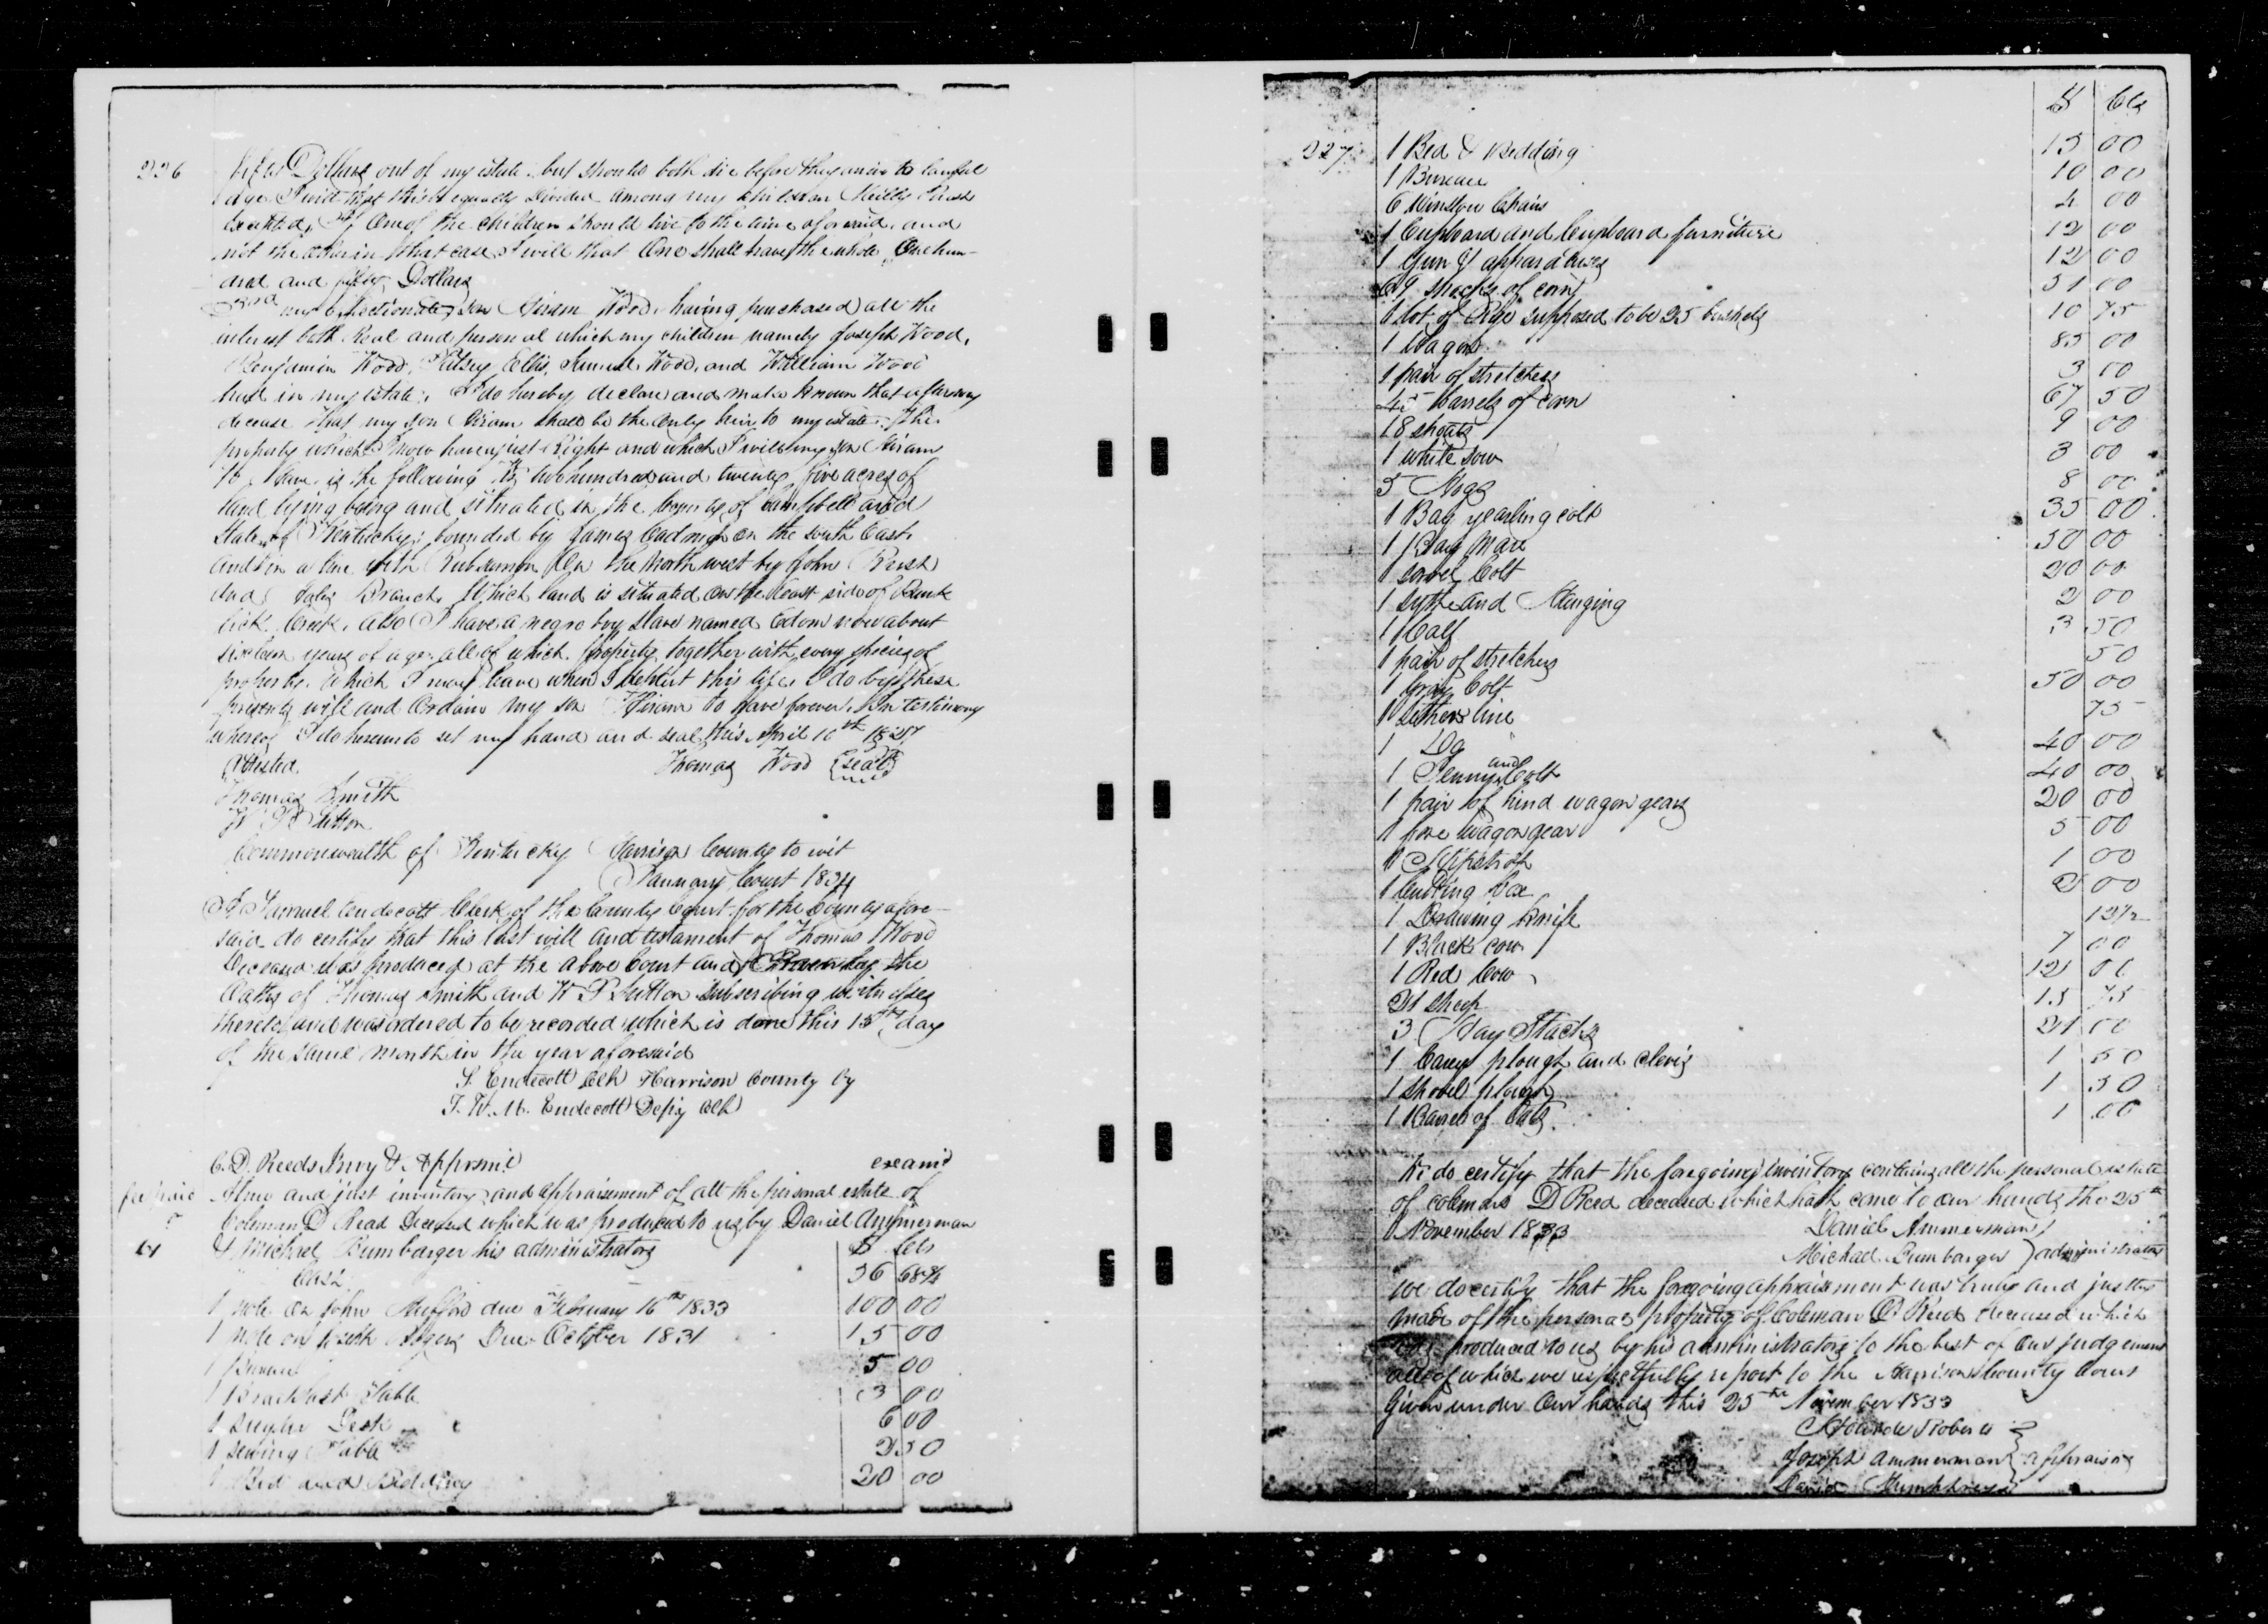 226
Dollars out of my estate, but should both die before they arrive to lawful
age I will that this be equally divided among my children
excepted, If one of the children should live to the time aforesaid, and
not the other in that case I will that one shall have the whole One hun-
dred and fifty Dollars
my affectionate son Hiram Wood, having purchased all the
interest both Real and personal which my children namely Joseph Wood,
Benjamin Wood, Patsey Ellis, Samuel Wood, and William Wood
had in my estate, I do hereby declare and make known that after my
decease that my son Hiram shall be the only heir to my estate. The
property which I now have just Right and which I will my son Hiram
to have is the following to wit two hundred and twenty five acres of
land lying being and situated in the County of Campbell and
State of Kentucky; bounded by James on the South East
and on a line with on the North west by John
and Branch, Which land is situated on the East side of
lick Creek, Also I have a negro boy Slave named now about
sixteen years of age all of which property together with every species of
property which I may have when I depart this life, I do by these
presents will and Ordain my son Hiram to have forever. In testimony
whereof I do hereunto set my hand and seal, this April 10th
Attested. Thomas Wood {seal}
Thomas Smith
W P Sutton
Commonwealth of Kentucky Harrison County to wit
January Court 1834
I Samuel Endecott Clerk of the County Court for the County afore-
said do certify that this last will and testament of Thomas Wood
Deceased was produced at the above Court and Proven by the
Oaths of Thomas Smith and W P Sutton Subscribing witnesses
thereto and was ordered to be recorded which is done this 15th day
of the same month in the year aforesaid
S. Endecott Clk Harrison County by
T. W. M. Endecott Depy Clk
C. D. Reeds Invy & Apprsmt examd
A true and just inventory and appraisement of all the personal estate of
Coleman D Read Deceased which was produced to us by Daniel Ammerman
& Michael Rumbarger his administrators $ Cts
Cash 36 68¾
1 note on John Mefford due February 16th 1833 100 00
1 Note on Due October 1831 15 00
1 5 00
1 Breackfast Table 3 00
1 Desk 6 00
1 sewing Table 2 50
1 Bed and Bedding 20 00
227 $ Cts
1 Bed & Bedding 15 00
1 Bureau 10 00
6 Winston Chairs 4 00
1 Cupboard and Cupboard furniture 12 00
1 Gun & apparatuses 12 00
69 shocks of corn 31 00
1 lot of Rye supposed to be 25 bushels 10 75
1 Wagon 85 00
1 pair of stretchers 3 00
45 barrels of corn 67 50
18 shoats 9 00
1 white sow 3 00
5 Hogs 8 00
1 Bay yearling colt 35 00
1 Bay Mare 50 00
1 sorrel Colt 20 00
1 sythe and Hanging 2 00
1 Calf 3 50
1 pair of stretchers 50
1 Gray Colt 50 00
1 lether line 75
1 Do 40 00
1 Jenny and Colt 40 00
1 pair of hind wagon gears 20 00
1 fore wagon gear 5 00
1 1 00
1 Cutting box 2 00
1 Drawing knife 12½
1 Black cow 7 00
1 Red Cow 12 00
21 sheep 15 75
3 Hay Stacks 21 00
1 Carey plough and clevis 1 50
1 shovel plough 1 50
1 Barrel of Oats 1 00
We do certify that the foregoing inventory contains all the personal estate
of Coleman D Reed deceased which hath come to our hands the 25th
November 1833 Daniel Ammerman
Michael Rumbarger } administrators
we do certify that the foregoing appraisement was truly and justly
made of the personal property of Coleman D Reed deceased which
was produced to us by his administrators to the best of our judgement
all of which we respectfully report to the Harrison County Court
Given under Our hands this 25th November 1833
Roberts
Joseph Ammerman } appraisers
David Humphreys